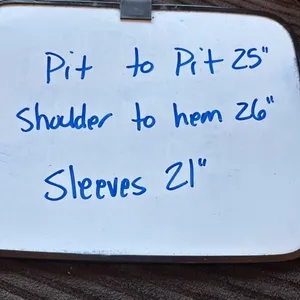 Pit to Pit 25"
Shoulder to hem 26"
Sleeves 21"